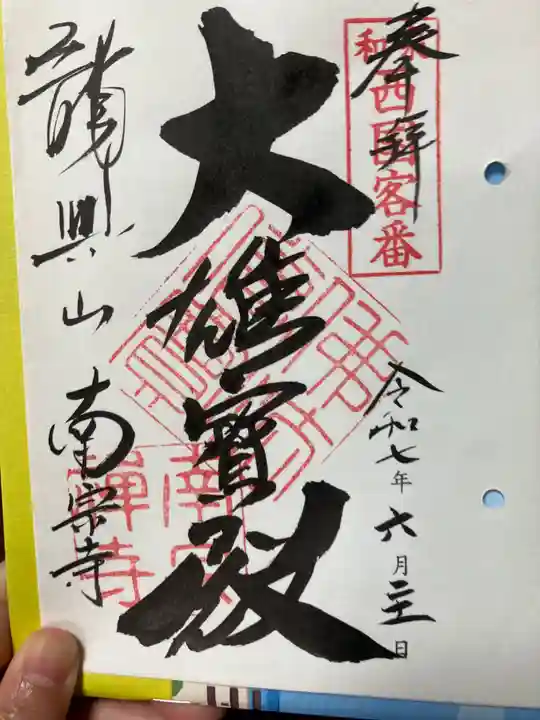 奉拝
西国客番
令和七年六月二十一日
大雄寶殿
龍興山 南宗寺
南宗禅寺